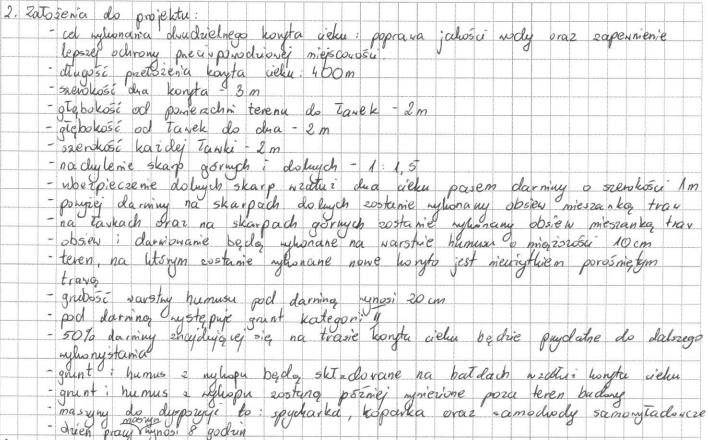 2. Założenia do projektu:
- cel wykonania dwudzielnego koryta cieku: poprawa jakości wody oraz zapewnienie
lepszej ochrony przeciwpowodziowej miejscowości.
- długość przełożenia koryta cieku: 400m
- szerokość dna koryta - 3m
- głębokość od powierzchni terenu do ławek - 2m
- głębokość od ławek do dna - 2m
- szerokość każdej ławki - 2m
- nachylenie skarp górnych i dolnych - 1:1,5
- ubezpieczenie dolnych skarp wzdłuż dna cieku pasem darniny o szerokości 1m
- powyżej darniny na skarpach dolnych zostanie wykonany obsiew mieszanką traw
- na ławkach oraz na skarpach górnych zostanie wykonany obsiew mieszanką traw
- obsiew i darniowanie będą wykonane na warstwie humusu o miąższości 10cm
- teren, na którym zostanie wykonane nowe koryto jest nieużytkiem porośniętym
trawą
- grubość warstwy humusu pod darniną wynosi 20cm
- pod darniną występuje grunt kategorii II
- 50% darniny znajdującej się na trasie koryta cieku będzie przydatne do dalszego
wykorzystania
- grunt i humus z wykopu będą składowane na hałdach wzdłuż koryta cieku
- grunt i humus z wykopu zostaną później wywiezione poza teren budowy
- maszyny do dyspozycji to: spycharka, koparka oraz samochody samowyładowcze
- dzień pracy maszyn wynosi 8 godzin